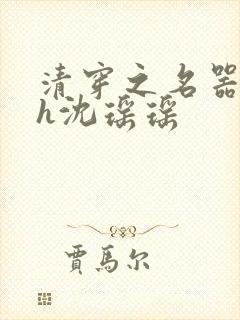 清穿之名器
h沈谣谣
贾馬尔